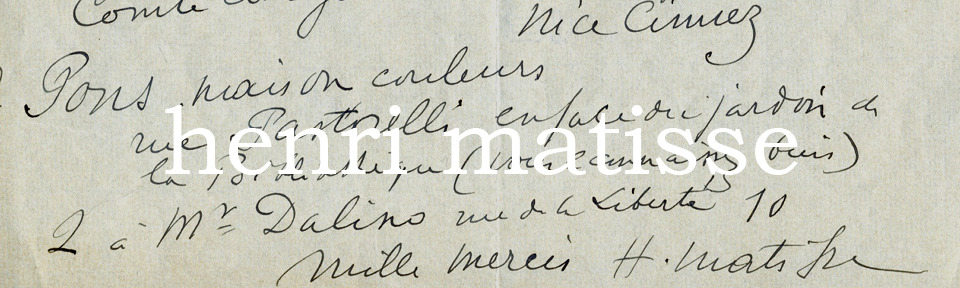 Comte
Nice Cimiez
Pons, maison couleurs
rue Pastorelli en face du jardin de
la Bibliothèque (vous connaissez puis)
2 à Mr Dalino rue de la Liberté 10
Mille mercis H. Matisse
henri matisse